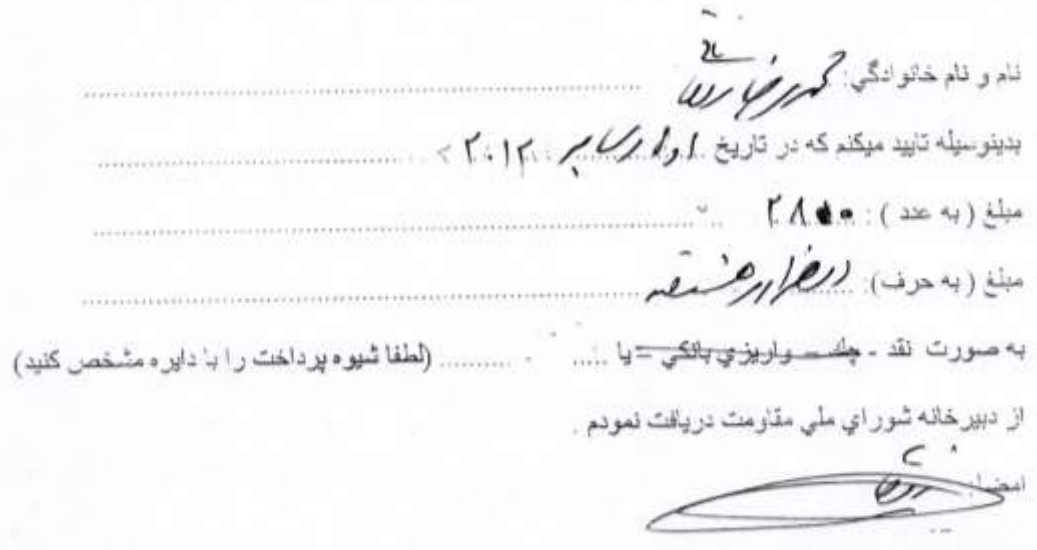 نام و نام خانوادگي: محمدرضا روحانی
بدينوسيله تاييد ميكنم كه در تاريخ اول دسامبر ۲۰۱۲
مبلغ ( به عدد ) : ۲۸۰۰
مبلغ ( به حرف): دوهزار و هشتصد
به صورت نقد - چك - واريزي بانكي - يا .......... (لطفا شيوه پرداخت را با دايره مشخص كنيد)
از دبيرخانه شوراي ملي مقاومت دريافت نمودم .
امضا: